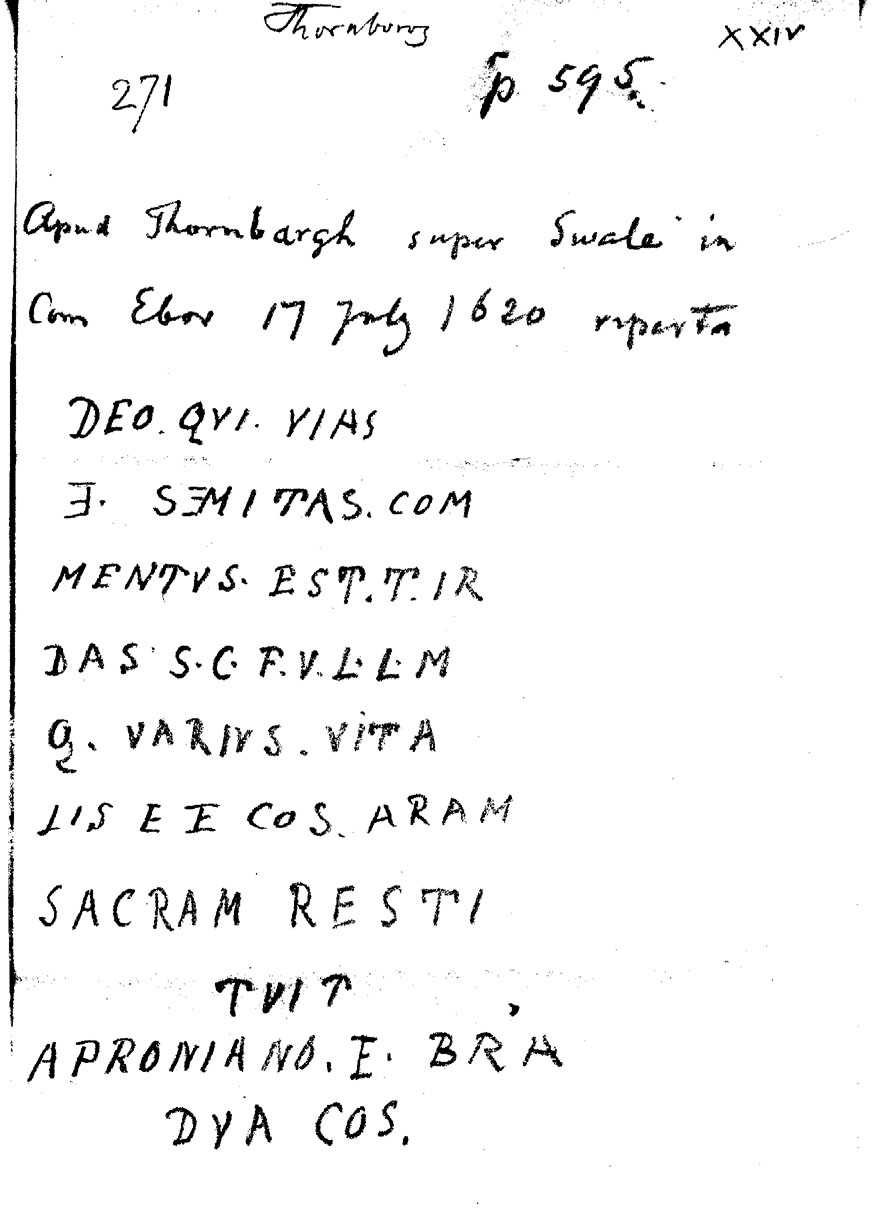 Thornburg
XXIV
271
p 595
Apud Thornbargh super Swale in
Com Ebor 17 July 1620 reperta
DEO. QVI. VIAS
Ǝ. SƎMITAS. COM
MENTVS. EST. T. IR
DAS S. C. F. V. L. L. M
Q. VARIVS. VITA
LIS E E COS. ARAM
SACRAM RESTI
TVIT
APRONIANO. E. BRA
DVA COS.